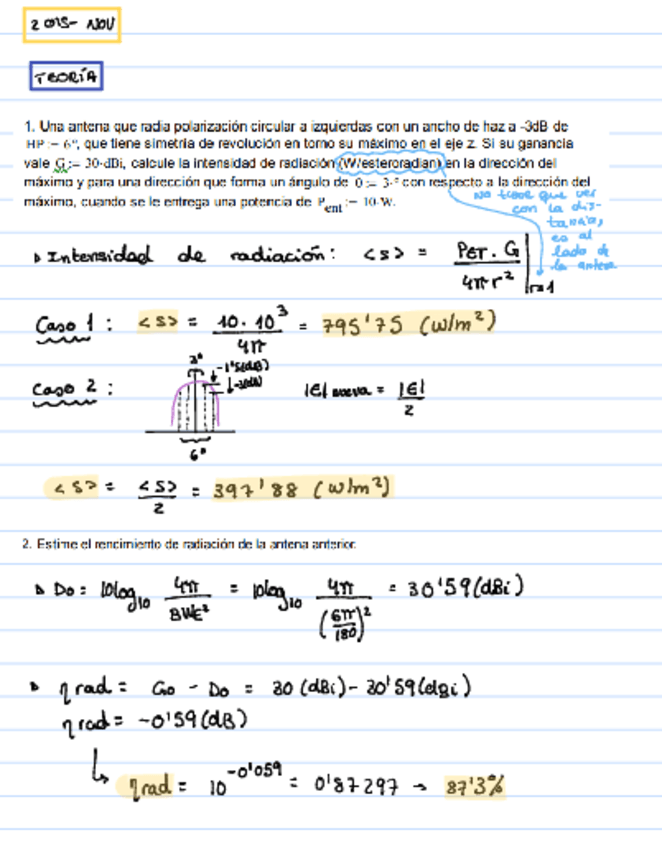 2015- NOV
TEORÍA
1. Una antena que radia polarización circular a izquierdas con un ancho de haz a -3dB de
HP := 6°, que tiene simetría de revolución en torno su máximo en el eje z. Si su ganancia
vale G := 30·dBi, calcule la intensidad de radiación (W/esteroradian) en la dirección del
máximo y para una dirección que forma un ángulo de θ := 3·° con respecto a la dirección del
máximo, cuando se le entrega una potencia de P_ent := 10·W.
No tiene que ver
con la dis-
tancia,
es al
lado de
la antena
Intensidad de radiación: <S> = PET · G / 4πr² |r=1
Caso 1: <S> = 10 · 10³ / 4π = 795'75 (W/m²)
3°
-1'5(dB)
-3(dB)
Caso 2: |E| nueva = |E| / 2
6°
<S> = <S> / 2 = 397'88 (W/m²)
2. Estime el rencimiento de radiación de la antena anterior.
Do = 10log10 4π / BWE² = 10log10 4π / (6π/180)² = 30'59(dBi)
ηrad = Go - Do = 30 (dBi) - 30'59(dBi)
ηrad = -0'59(dB)
ηrad = 10^-0'059 = 0'87297 → 87'3%